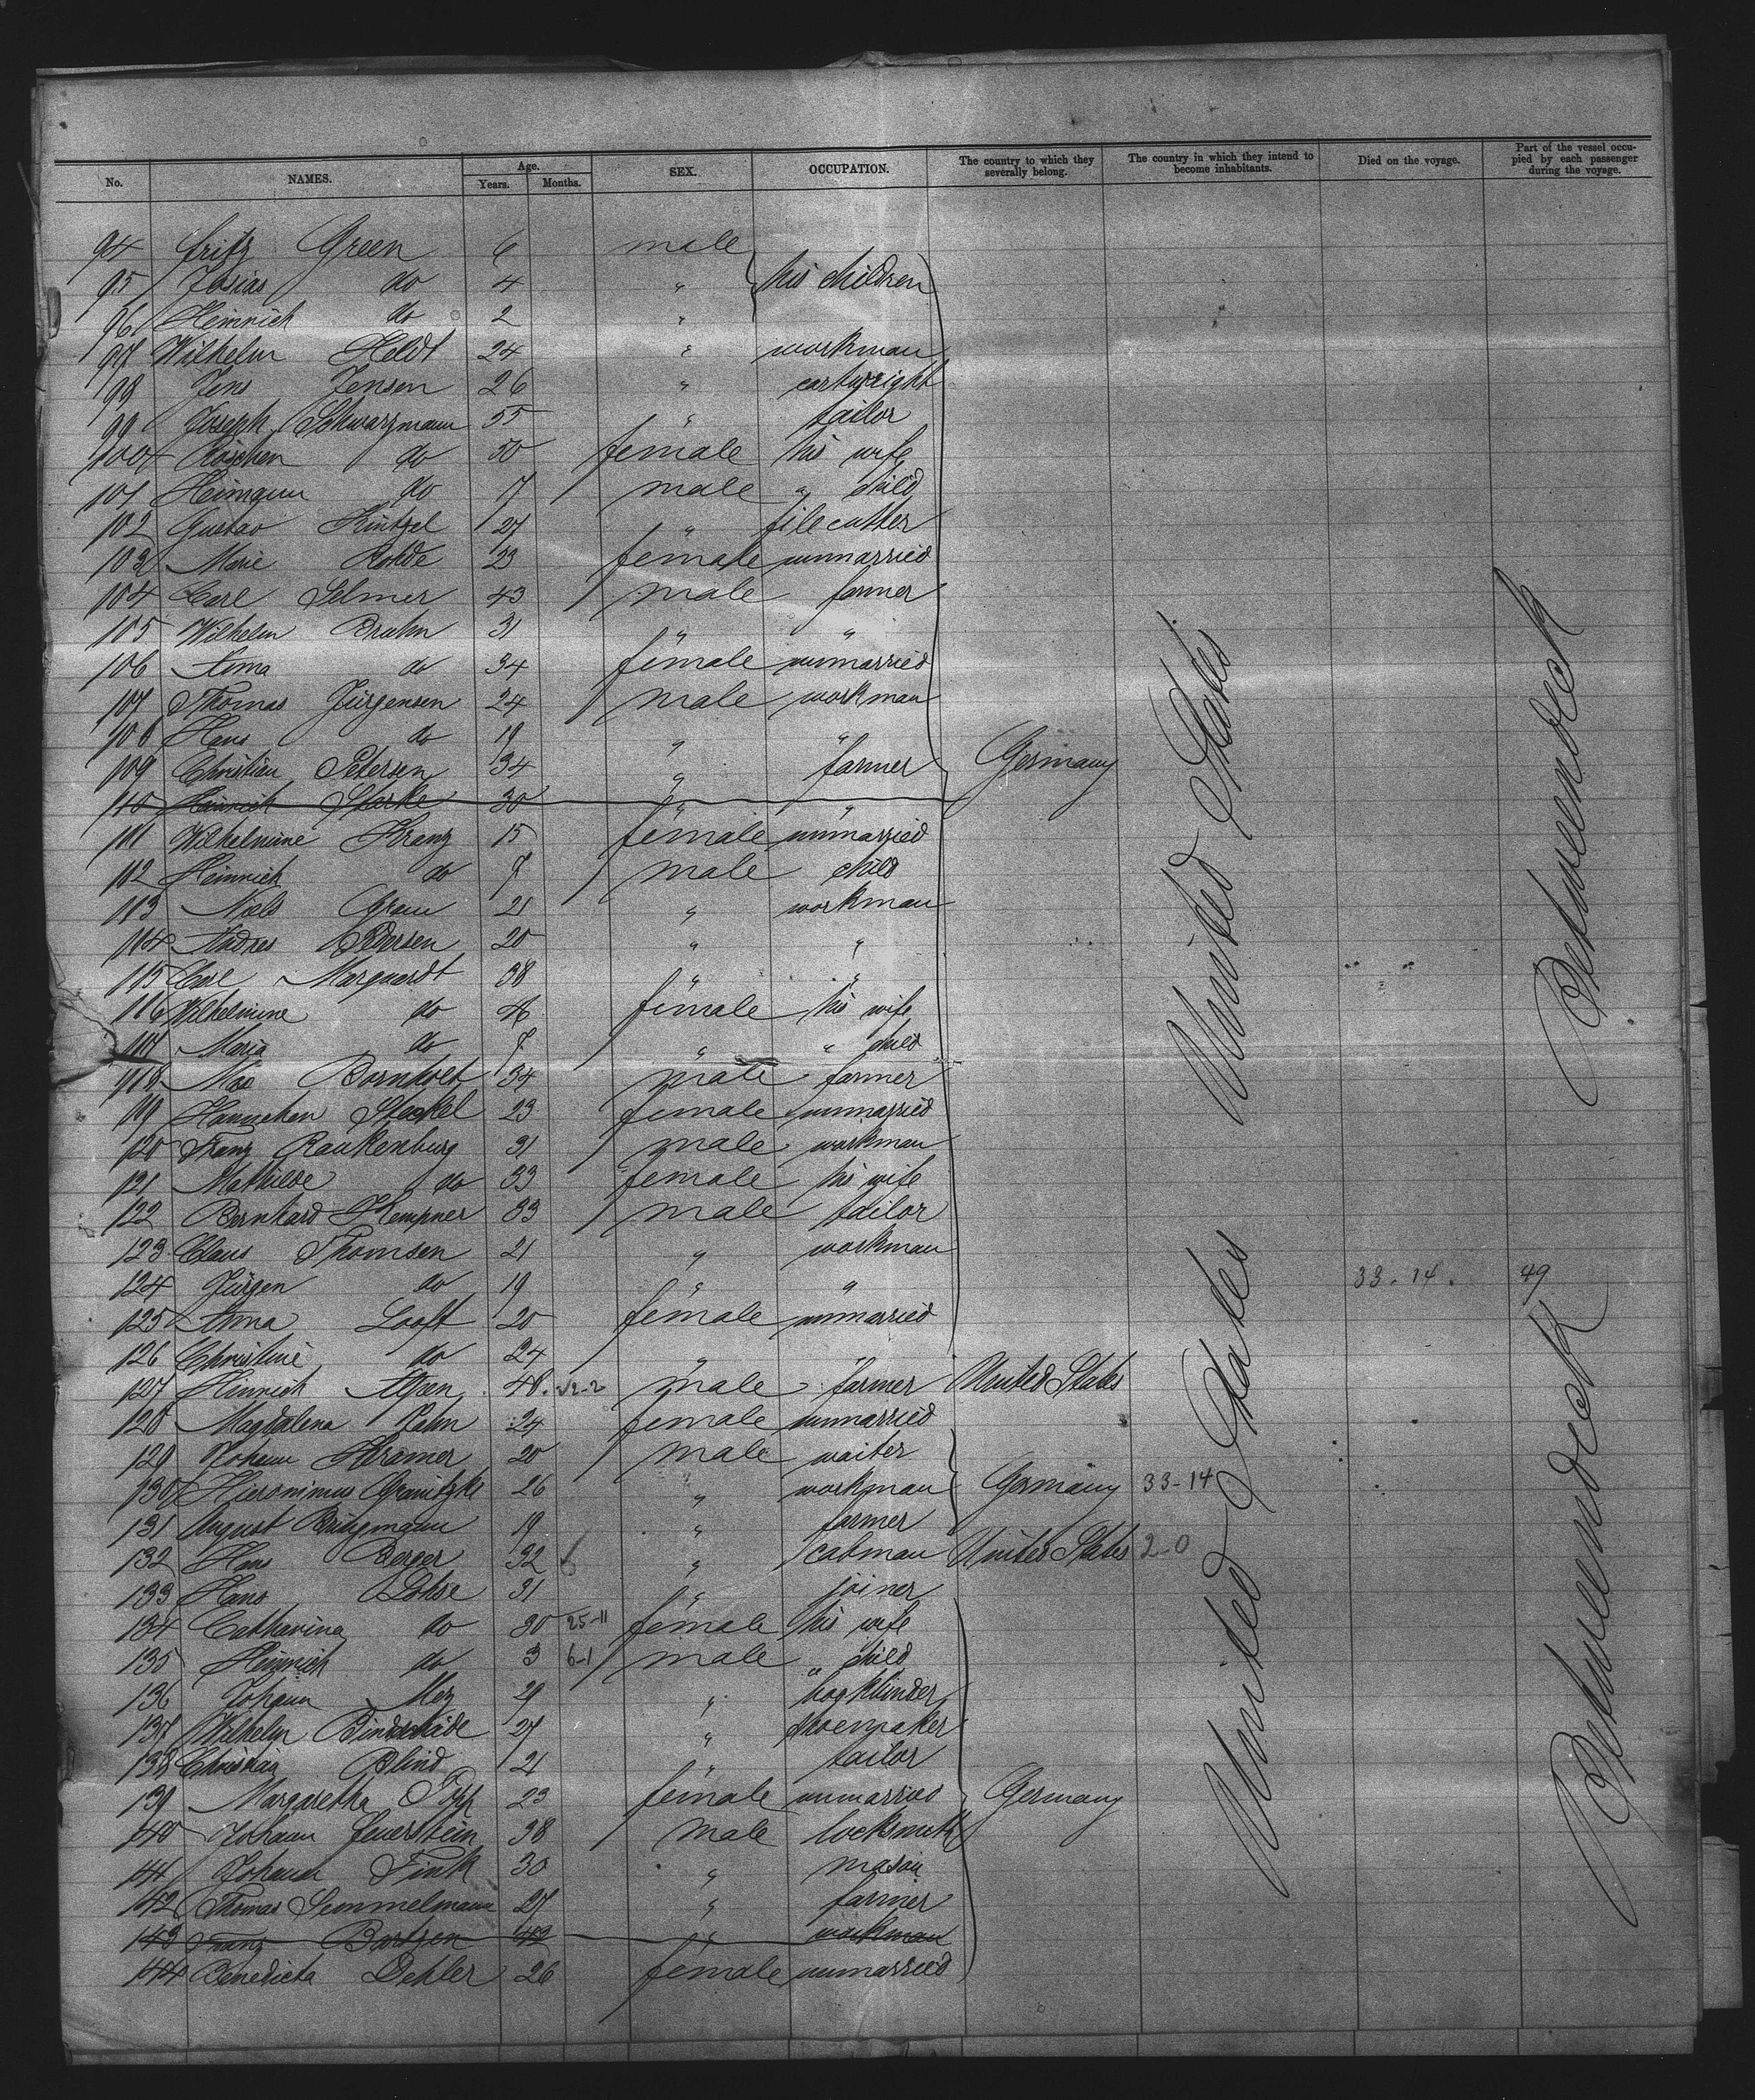 No. NAMES. Age. Years. Months. SEX. OCCUPATION. The country to which they severally belong. The country in which they intend to become inhabitants. Died on the voyage. Part of the vessel occupied by each passenger during the voyage.
94 Fritz Green 6 male
95 Josias do 4 " his children
96 Heinrich do 2 "
97 Wilhelm Heldt 24 " workman
98 Jens Jensen 26 " cartwright
99 Joseph Schwarzmann 55 " tailor
100 Röschen do 50 female his wife
101 do 7 male " child
102 Gustav Küntzel 27 " filecutter
103 Marie Rohde 23 female unmarried
104 Carl Selmer 43 male farmer
105 Wilhelm Bruhn 31 " "
106 Anna do 34 female unmarried
107 Thomas Jürgensen 24 male workman
108 Hans do 19 " "
109 Christian Petersen 34 " farmer Germany
110 Heinrich Starke 30 " "
111 Wilhelmine Kranz 15 female unmarried
112 Heinrich do 7 male child
113 Niels Gram 21 " workman
114 Andres Petersen 20 " "
115 Carl Marquardt 38 " "
116 Wilhelmine do female his wife
117 Maria do 7 " " child
118 Max Bornholt 34 male farmer
119 Hannchen Steckel 23 female unmarried
120 Franz Rankenburg 31 male workman
121 Mathilde do 33 female his wife
122 Bernhard Kempner 33 male tailor
123 Claus Thomsen 21 " workman
124 Jürgen do 19 " " 33-14. 49
125 Anna Looft 20 female unmarried
126 Christine do 24 " "
127 Hinrich Alpen 48 male farmer United States
128 Magdalena Rahn 24 female unmarried
129 Johann Kramer 20 male waiter
130 Hieronimus Granitzke 26 " workman Germany 33-14
131 August Bringmann 19 " farmer
132 Hans Berger 32 " cabman United States 2-0
133 Hans Lohse 31 " joiner
134 Catharina do 30 25-11 female his wife
135 Heinrich do 3 6-1 male " child
136 Johann Mez 29 " bookbinder
137 Wilhelm 27 " shoemaker
138 Christian Blind 21 " tailor
139 Margaretha Topp 23 female unmarried Germany
140 Johann Feuerstein 38 male locksmith
141 Johann Fink 30 " mason
142 Thomas Semmelmann 27 " farmer
143 Franz Bartzen 42 " workman
144 Benedicta Dehler 26 female unmarried
United States
United States
Betweendeck
Betweendeck